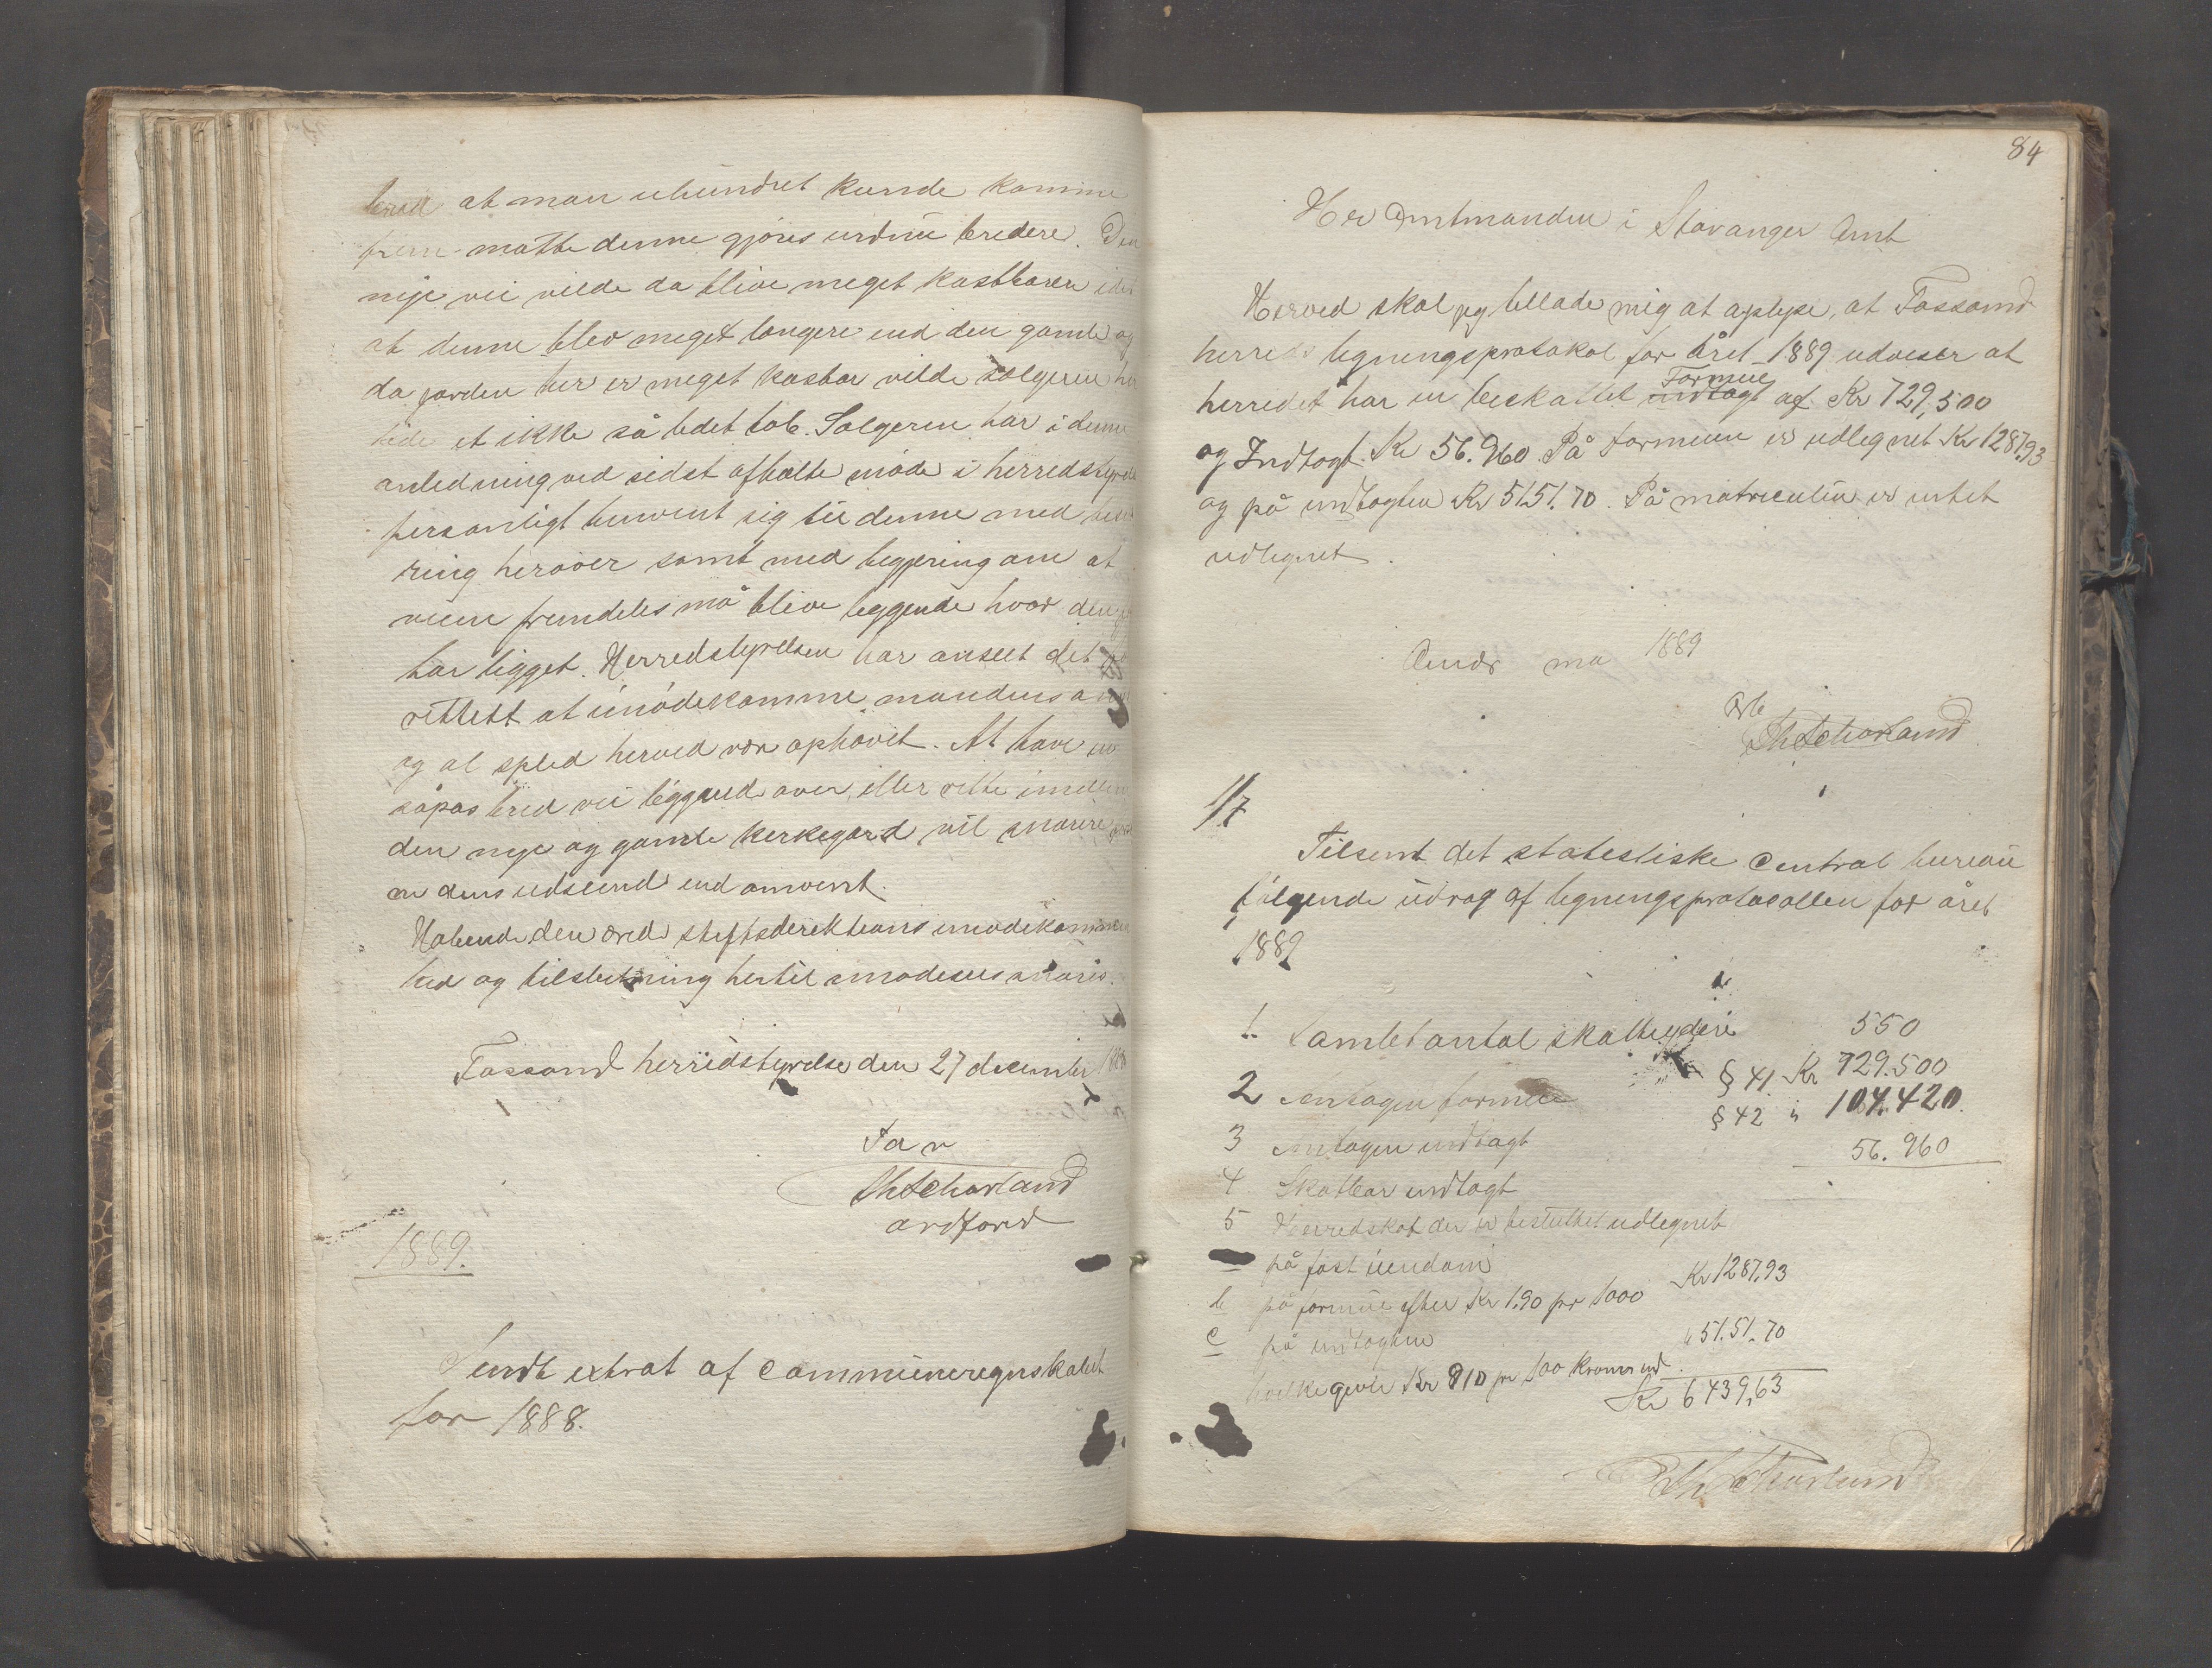 bred at man uhindret kunde komme
frem måtte denne gjøres endnu bredere. Den
nye vei vilde da blive meget kostbarere idet
at denne blev meget længere end den gamle og
da jorden her er meget kostbar vilde sælgeren
lide et ikke så lidet tab. Sælgeren har i denne
anledning ved sidst afholte møde i herredstyrelse
personligt henvent sig til denne med besv
ring herover samt med begjæring om at
veien fremdeles må blive liggende hvor den
har ligget. Herredstyrelsen har anseet det
rettest at imødekomme mandens
og al splid herved vær ophævet. At have en
såpas bred vei liggende over, eller rette imellem
den nye og gamle kirkegård vil snarere
en dens udseende end omvent.
Håbende den ærede stiftsdirektions imødekommen
hed og tilslutning hertil imødesees snarest.
Fossand herredstyrelse den 27 december
Th Schorland
ordfører
1889.
Sendt extrat af communeregnskabet
for 1888.
84
Her Amtmanden i Stavanger Amt
Herved skal jeg tillade mig at oplyse, at Fossand
herreds ligningsprotokol for året 1889 udviser at
herredet har en beskattet Formue indtægt af Kr 729,500
og Indtægt Kr 56.960. På formuen er udlignet Kr 1287,93
og på indtægten Kr 5151.70. På matriculen er intet
udlignet.
1889
Th Schorland
1/7
Tilsent det statistiske Central bureau
følgende udrag af ligningsprotocollen for året
1889
1. Samlet antal skatteydere 550
2 Antagen formue § 41. Kr 729.500
3 Antagen indtægt § 42 " 104.420.
4. Skatbar indtægt 56.960
5 Herredskat der er besluttet udlignet
på fast eiendom
b på formue efter Kr 1.90 pr 1000 Kr 1287,93
c på indtægten " 51.51.70
hvilke gjorde Kr 910 pr 100 kroner ind.
Kr 6439,63
Th Schorland